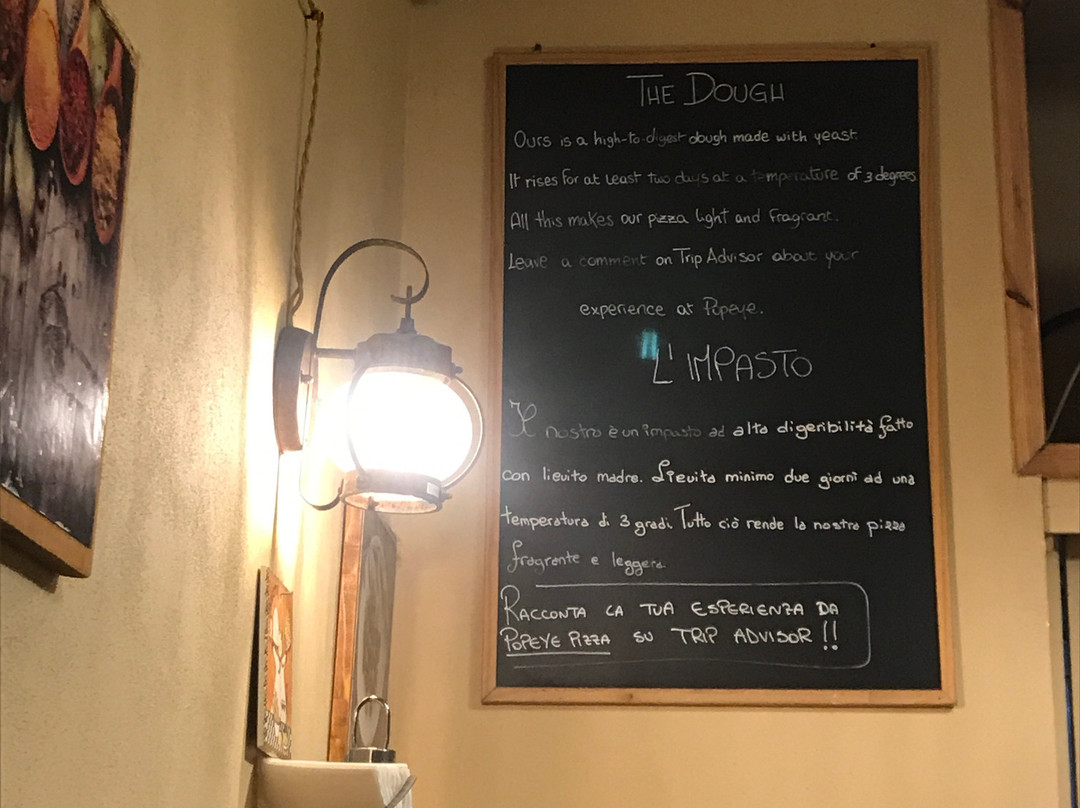 THE DOUGH
Ours is a high-to-digest dough made with yeast.
It rises for at least two days at a temperature of 3 degrees
All this makes our pizza light and fragrant.
Leave a comment on Trip Advisor about your
experience at Popeye.
L'IMPASTO
Il nostro è un impasto ad alta digeribilità fatto
con lievito madre. Lievita minimo due giorni ad una
temperatura di 3 gradi. Tutto ciò rende la nostra pizza
fragrante e leggera.
RACCONTA LA TUA ESPERIENZA DA
POPEYE PIZZA SU TRIP ADVISOR!!